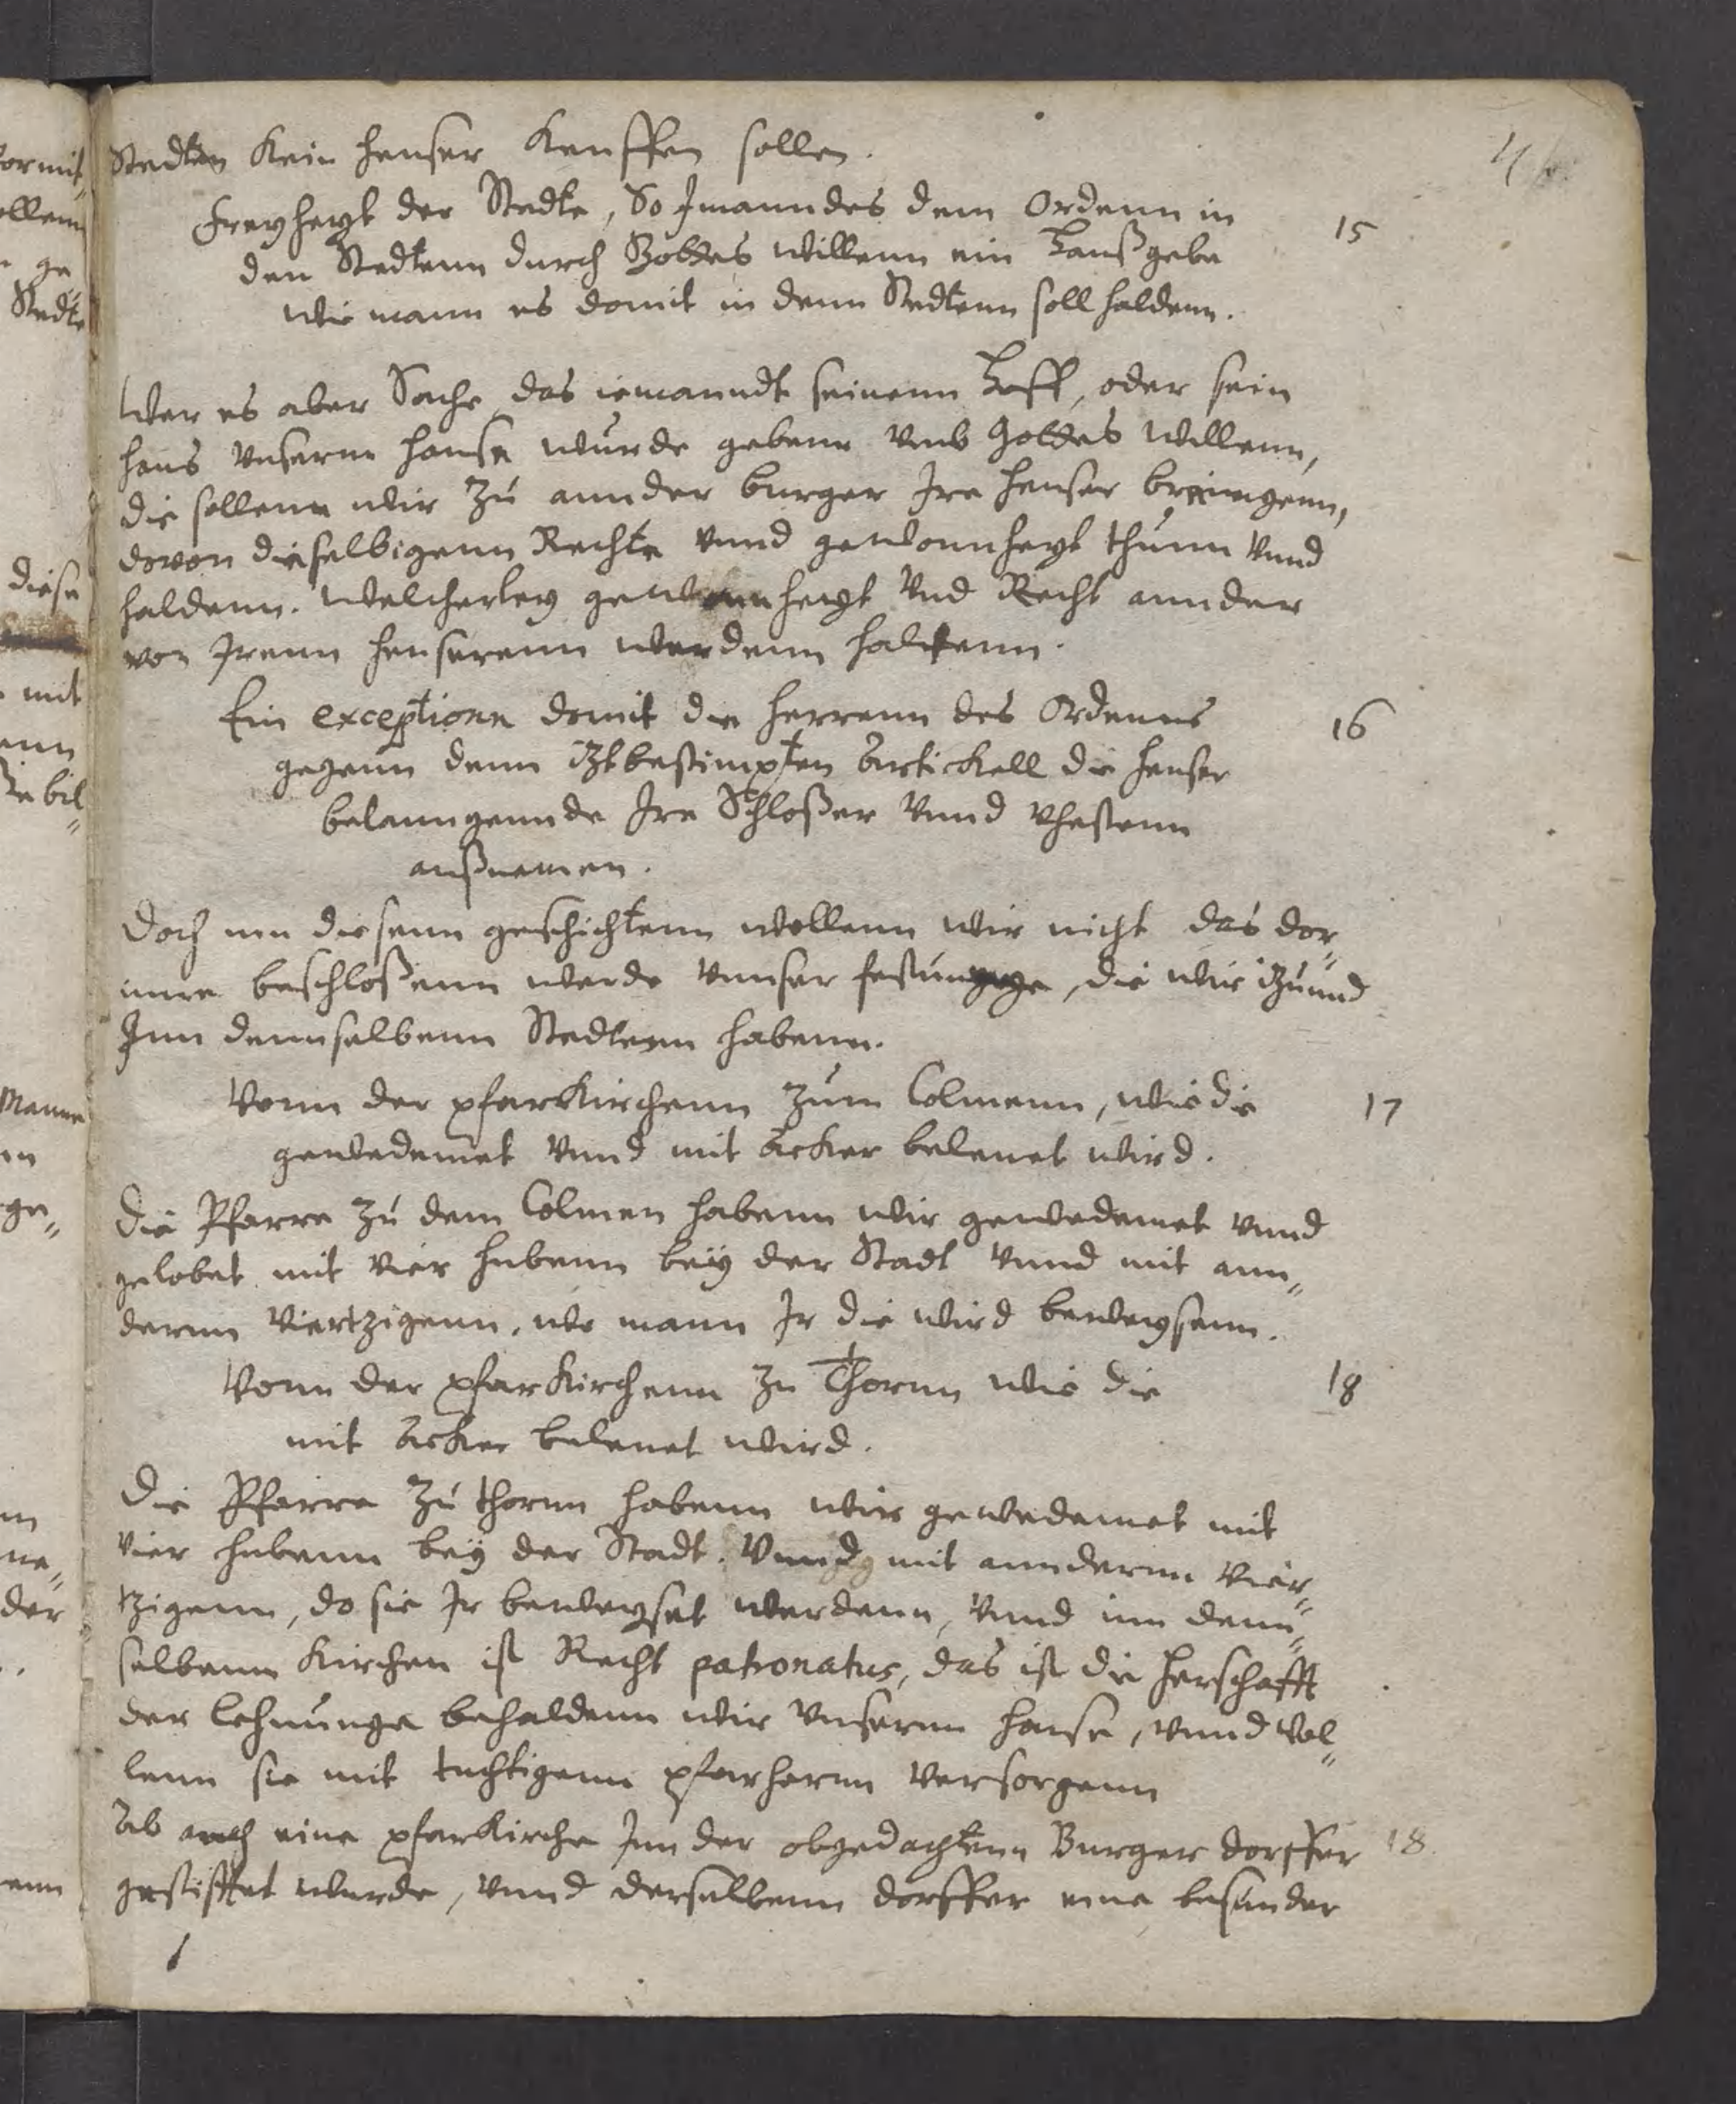 Stedten kein heuser keuffen sollen.
4
Freyheyt der Stedte, So Jmanndes dem Ordenn in
15
den Stedtenn durch Gottes willenn ein Hauß gebe
wie mann es domit in denn Stedtenn soll haldenn.
Wer es aber Sache das iemanndt seinenn Hoff, oder sein
haus vnserm hause wurde gebenn vmb Gottes willenn,
die sollenn wir zu annder burger Jre heuser bringenn,
dovon dieselbigenn Rechte vnnd gewonnheyt thunn vnnd
haldenn. Welcherley gewonnheyt vnd Recht annder
von Jrenn heuserenn werdenn haltenn.
Ein exceptionn domit die herrenn des Ordenns
16
gegenn denn itztbestimpten Artickell die heuser
belanngennde Jre Schloßer vnnd Vhestenn
außnemen.
Doch inn diesenn geschichtenn wollenn wir nicht das dor„
inne beschloßenn werde vnnser festunge, die wir itzunnd
Jnn dennselbenn Stedtenn habenn.
Vonn der pfarkirchenn zum Colmenn, wie die
17
gewedemet vnnd mit Acker belenet wird.
Die Pfarre zu dem Colmen habenn wir gewedemet vnnd
gelobet mit vier hubenn bey der Stadt vnnd mit ann„
dernn viertzigenn, wo mann Jr die wird beweysenn.
Vonn der pfarkirchenn zu Thornn wie die
18
mit Acker belenet wird.
Die Pfarre zu thornn habenn wir gewedemet mit
vier hubenn bey der Stadt. Vnnd mit anndernn vier„
tzigenn, do sie Jr beweyset werdenn, vnnd inn denn„
selbenn Kirchen ist Recht patronatus, das ist die herschafft
der lehnunge behaldenn wir vnserm hause, vnnd wol„
lenn sie mit tuchtigenn pfarhernn versorgenn
Ab auch eine pfarkirche Jnn der obgedachtenn Burger dorffer
18.
gestifftet wurde, vnnd derselbenn dorffer eine besunder